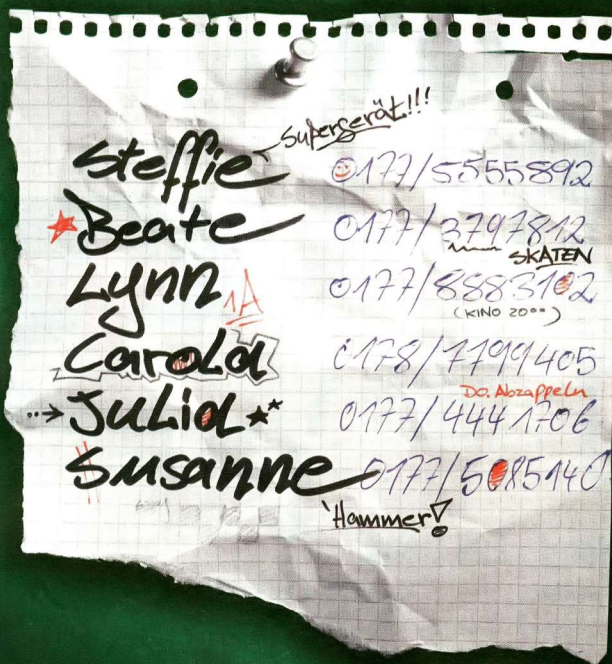 Supergerät!!!
Steffie 0177/5555892
Beate 0177/3797812
SKATEN
Lynn 1A 0177/8883102
(KINO 20°°)
Carola 0178/7799405
Do. Abzappeln
Julia 0177/4441706
Susanne 0177/5085140
Hammer!